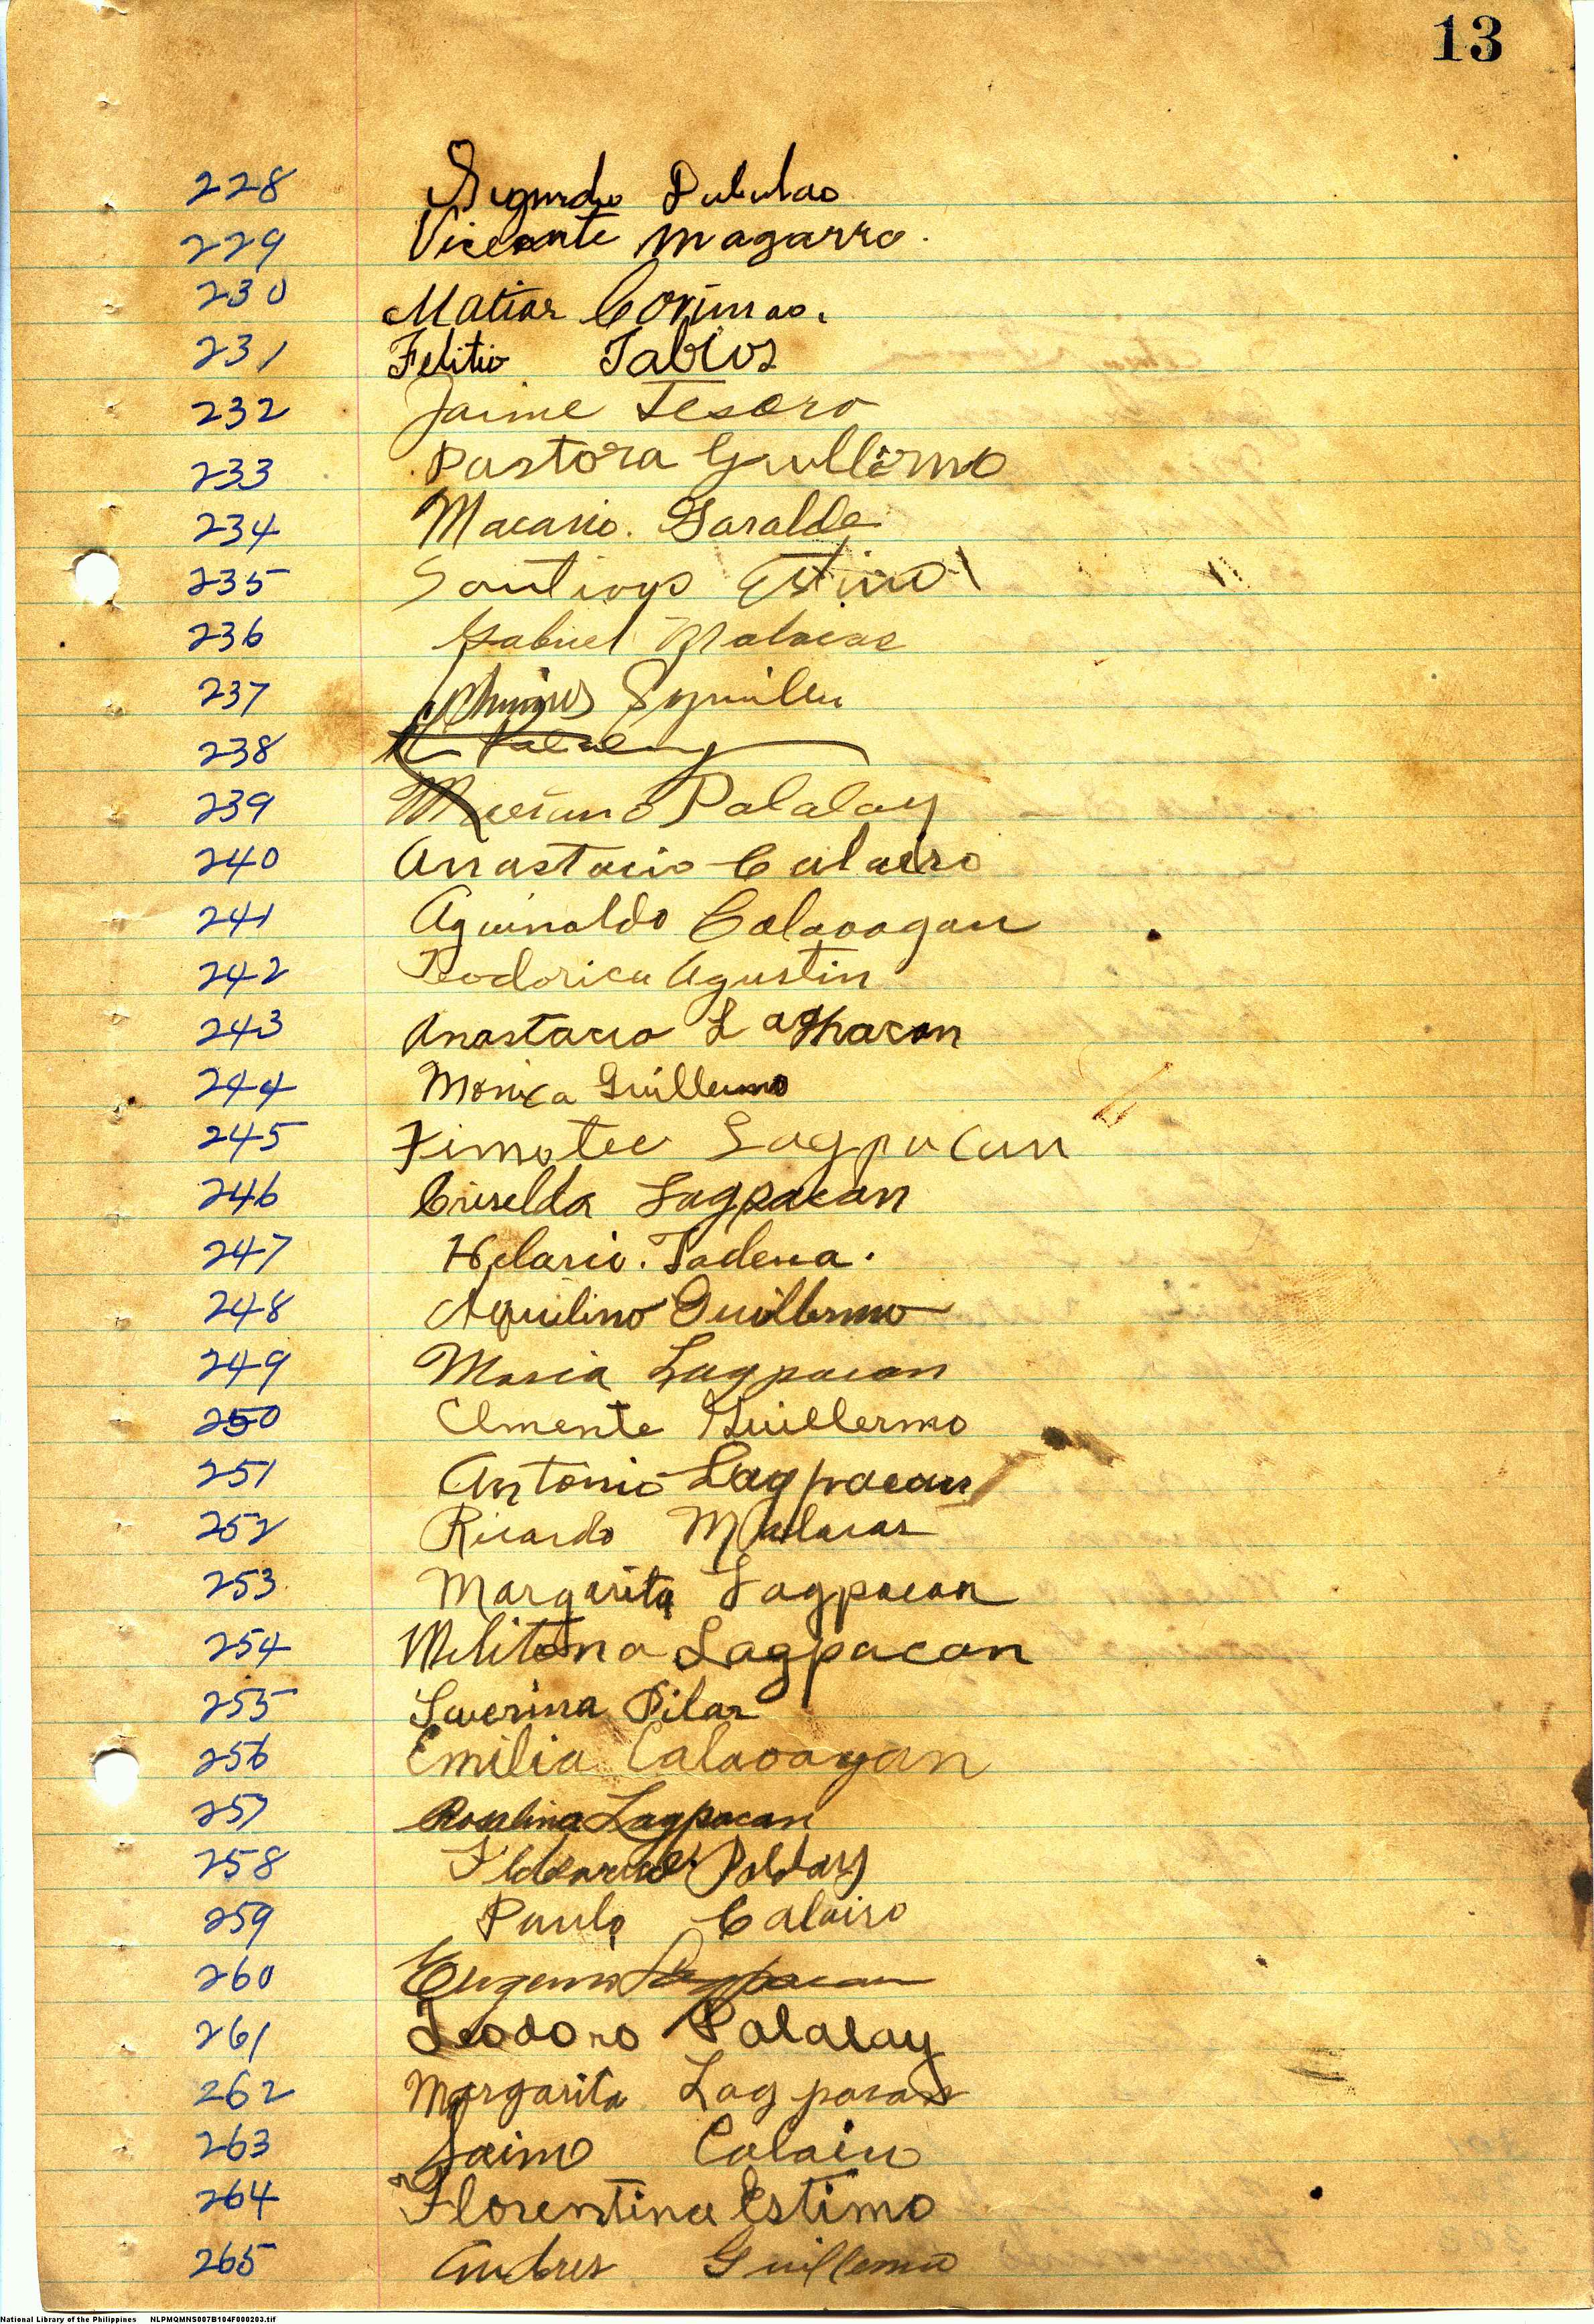 13
228 Segundo Pululao
229 Vicente Magarro.
230 Matias Corumao.
231 Felitio Tablos
232 Jaime Tesoro
233 Pastora Guillermo
234 Macario. Garalde
235 Santiago Estimo
236 Gabriel Malacas
237
238
239 Mariano Palalay
240 Anastacio Calairo
241 Aguinaldo Calaoagan
242 Teodorica Agustin
243 Anastacio Lagpacan
244 Monica Guillermo
245 Timoteo Lagpacan
246 Criselda Lagpacan
247 Helario. Tadena.
248 Aquilino Guillermo
249 Maria Lagpacan
250 Clmente Guillermo
251 Antonio Lagpacan
252 Ricardo Malacas
253 Margarita Lagpacan
254 Melitona Lagpacan
255 Severina Pilar
256 Emilia Calaoagan
257 Roselina Lagpacan
258
259 Paulo Calairo
260 Eugenio Lagpacan
261 Teodoro Palalay
262 Margarita Lagpacan
263 Jaimo Calairo
264 Florentina Estimo
265 Andres Guillermo
National Library of the Philippines NLPMQMNS007B104F000203.tif